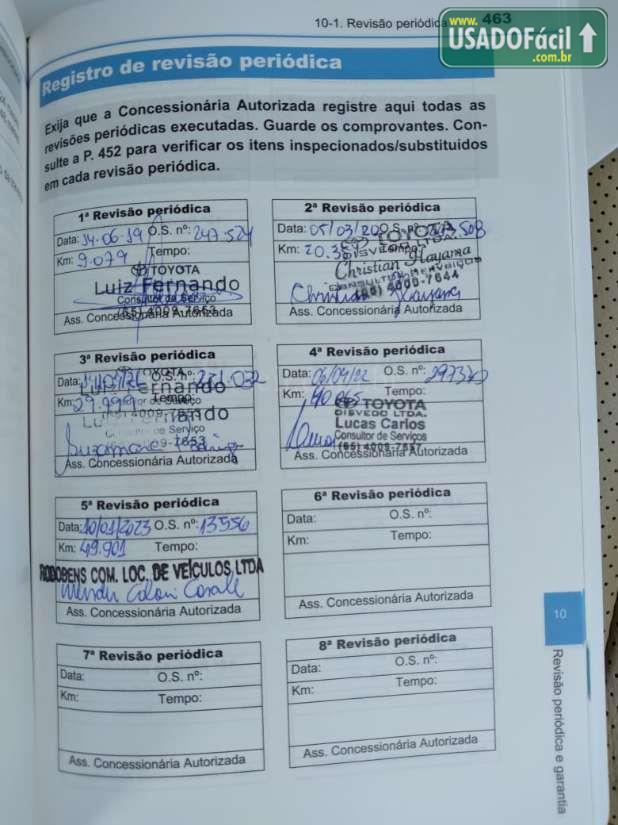 10-1. Revisão periódica 463
www.
USADOFácil
.com.br
Registro de revisão periódica
Exija que a Concessionária Autorizada registre aqui todas as
revisões periódicas executadas. Guarde os comprovantes. Con-
sulte a P. 452 para verificar os itens inspecionados/substituidos
em cada revisão periódica.
1ª Revisão periódica
Data: 14-06-19 O.S. nº: 247.524
Km: 9.079 Tempo:
TOYOTA
Luiz Fernando
Consultor de Serviço
(65) 4009-7653
Ass. Concessionária Autorizada
2ª Revisão periódica
Data: 05/03/20 O.S. nº:
Km:
TOYOTA
DISVECO LTDA.
Christian Hayama
CONSULTOR SERVIÇOS
(65) 4009-7644
Ass. Concessionária Autorizada
3ª Revisão periódica
Data: O.S. nº:
Km: 29.999 Tempo:
TOYOTA
Luiz Fernando
Consultor de Serviço
Luiz Fernando
Consultor de Serviço
Ass. Concessionária Autorizada
4ª Revisão periódica
Data: 06/04/22 O.S. nº:
Km: 40.065 Tempo:
TOYOTA
DISVECO LTDA.
Lucas Carlos
Consultor de Serviços
(65) 4009-7657
Ass. Concessionária Autorizada
5ª Revisão periódica
Data: 10/01/2023 O.S. nº: 13556
Km: 49.901 Tempo:
RODOBENS COM. LOC. DE VEÍCULOS LTDA
Ass. Concessionária Autorizada
6ª Revisão periódica
Data: O.S. nº:
Km: Tempo:
Ass. Concessionária Autorizada
7ª Revisão periódica
Data: O.S. nº:
Km: Tempo:
Ass. Concessionária Autorizada
8ª Revisão periódica
Data: O.S. nº:
Km: Tempo:
Ass. Concessionária Autorizada
10
Revisão periódica e garantia